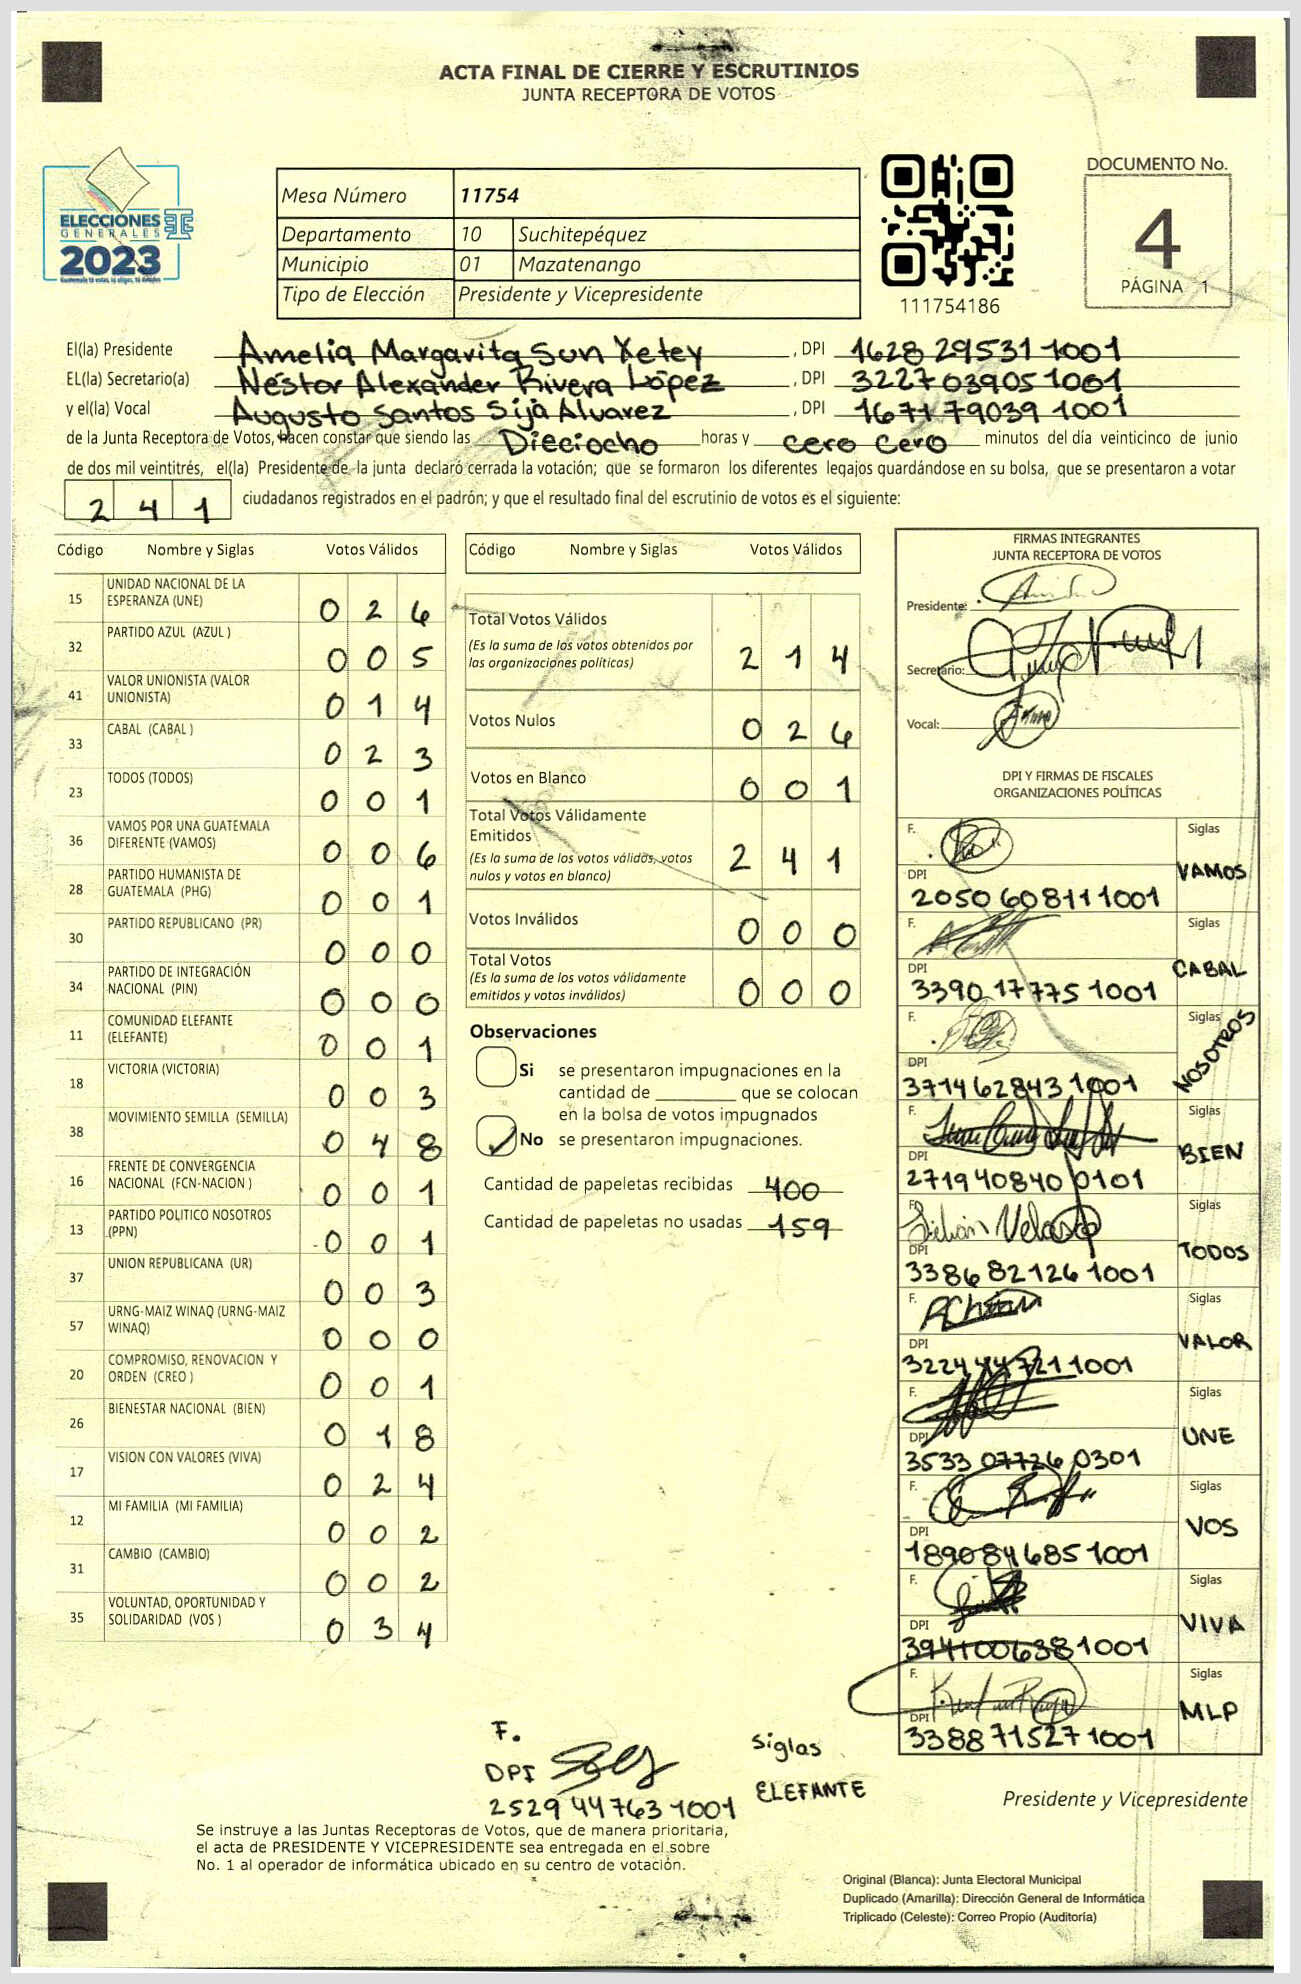 ACTA FINAL DE CIERRE Y ESCRUTINIOS
JUNTA RECEPTORA DE VOTOS
ELECCIONES
GENERALES
2023
Mesa Número 11754
Departamento 10 Suchitepéquez
Municipio 01 Mazatenango
Tipo de Elección Presidente y Vicepresidente
111754186
DOCUMENTO No.
4
PÁGINA 1
El(la) Presidente Amelia Margarita Sun Xetey , DPI 1628 29531 1001
EL(la) Secretario(a) Néstor Alexander Rivera López , DPI 3227 03905 1001
y el(la) Vocal Augusto Santos Sijà Alvarez , DPI 1671 79039 1001
de la Junta Receptora de Votos, hacen constar que siendo las Dieciocho horas y cero cero minutos del día veinticinco de junio
de dos mil veintitrés, el(la) Presidente de la junta declaró cerrada la votación; que se formaron los diferentes legajos guardándose en su bolsa, que se presentaron a votar
2 4 1 ciudadanos registrados en el padrón; y que el resultado final del escrutinio de votos es el siguiente:
Código Nombre y Siglas Votos Válidos
15 UNIDAD NACIONAL DE LA
ESPERANZA (UNE) 0 2 6
32 PARTIDO AZUL (AZUL ) 0 0 5
41 VALOR UNIONISTA (VALOR
UNIONISTA) 0 1 4
33 CABAL (CABAL ) 0 2 3
23 TODOS (TODOS) 0 0 1
36 VAMOS POR UNA GUATEMALA
DIFERENTE (VAMOS) 0 0 6
28 PARTIDO HUMANISTA DE
GUATEMALA (PHG) 0 0 1
30 PARTIDO REPUBLICANO (PR) 0 0 0
34 PARTIDO DE INTEGRACIÓN
NACIONAL (PIN) 0 0 0
11 COMUNIDAD ELEFANTE
(ELEFANTE) 0 0 1
18 VICTORIA (VICTORIA) 0 0 3
38 MOVIMIENTO SEMILLA (SEMILLA) 0 4 8
16 FRENTE DE CONVERGENCIA
NACIONAL (FCN-NACION ) 0 0 1
13 PARTIDO POLITICO NOSOTROS
(PPN) 0 0 1
37 UNION REPUBLICANA (UR) 0 0 3
57 URNG-MAIZ WINAQ (URNG-MAIZ
WINAQ) 0 0 0
20 COMPROMISO, RENOVACION Y
ORDEN (CREO ) 0 0 1
26 BIENESTAR NACIONAL (BIEN) 0 1 8
17 VISION CON VALORES (VIVA) 0 2 4
12 MI FAMILIA (MI FAMILIA) 0 0 2
31 CAMBIO (CAMBIO) 0 0 2
35 VOLUNTAD, OPORTUNIDAD Y
SOLIDARIDAD (VOS ) 0 3 4
Código Nombre y Siglas Votos Válidos
Total Votos Válidos
(Es la suma de los votos obtenidos por
las organizaciones políticas) 2 1 4
Votos Nulos 0 2 6
Votos en Blanco 0 0 1
Total Votos Válidamente
Emitidos
(Es la suma de los votos válidos, votos
nulos y votos en blanco) 2 4 1
Votos Inválidos 0 0 0
Total Votos
(Es la suma de los votos válidamente
emitidos y votos inválidos) 0 0 0
Observaciones
Si se presentaron impugnaciones en la
cantidad de ________ que se colocan
en la bolsa de votos impugnados
No se presentaron impugnaciones.
Cantidad de papeletas recibidas 400
Cantidad de papeletas no usadas 159
FIRMAS INTEGRANTES
JUNTA RECEPTORA DE VOTOS
Presidente:
Secretario:
Vocal:
DPI Y FIRMAS DE FISCALES
ORGANIZACIONES POLÍTICAS
F. Siglas
VAMOS
DPI
2050 60811 1001
F. Siglas
CABAL
DPI
3390 17775 1001
F. Siglas
NOSOTROS
DPI
3714 62843 1001
F. Siglas
BIEN
DPI
2719 40840 0101
F. Siglas
TODOS
DPI
3386 82126 1001
F. Siglas
VALOR
DPI
3224 44721 1001
F. Siglas
UNE
DPI
3533 07726 0301
F. Siglas
VOS
DPI
1890 84685 1001
F. Siglas
VIVA
DPI
3941 00638 1001
F. Siglas
MLP
DPI
3388 71527 1001
F.
DPI Siglas
2529 44763 1001 ELEFANTE
Presidente y Vicepresidente
Se instruye a las Juntas Receptoras de Votos, que de manera prioritaria,
el acta de PRESIDENTE Y VICEPRESIDENTE sea entregada en el sobre
No. 1 al operador de informática ubicado en su centro de votación.
Original (Blanca): Junta Electoral Municipal
Duplicado (Amarilla): Dirección General de Informática
Triplicado (Celeste): Correo Propio (Auditoría)